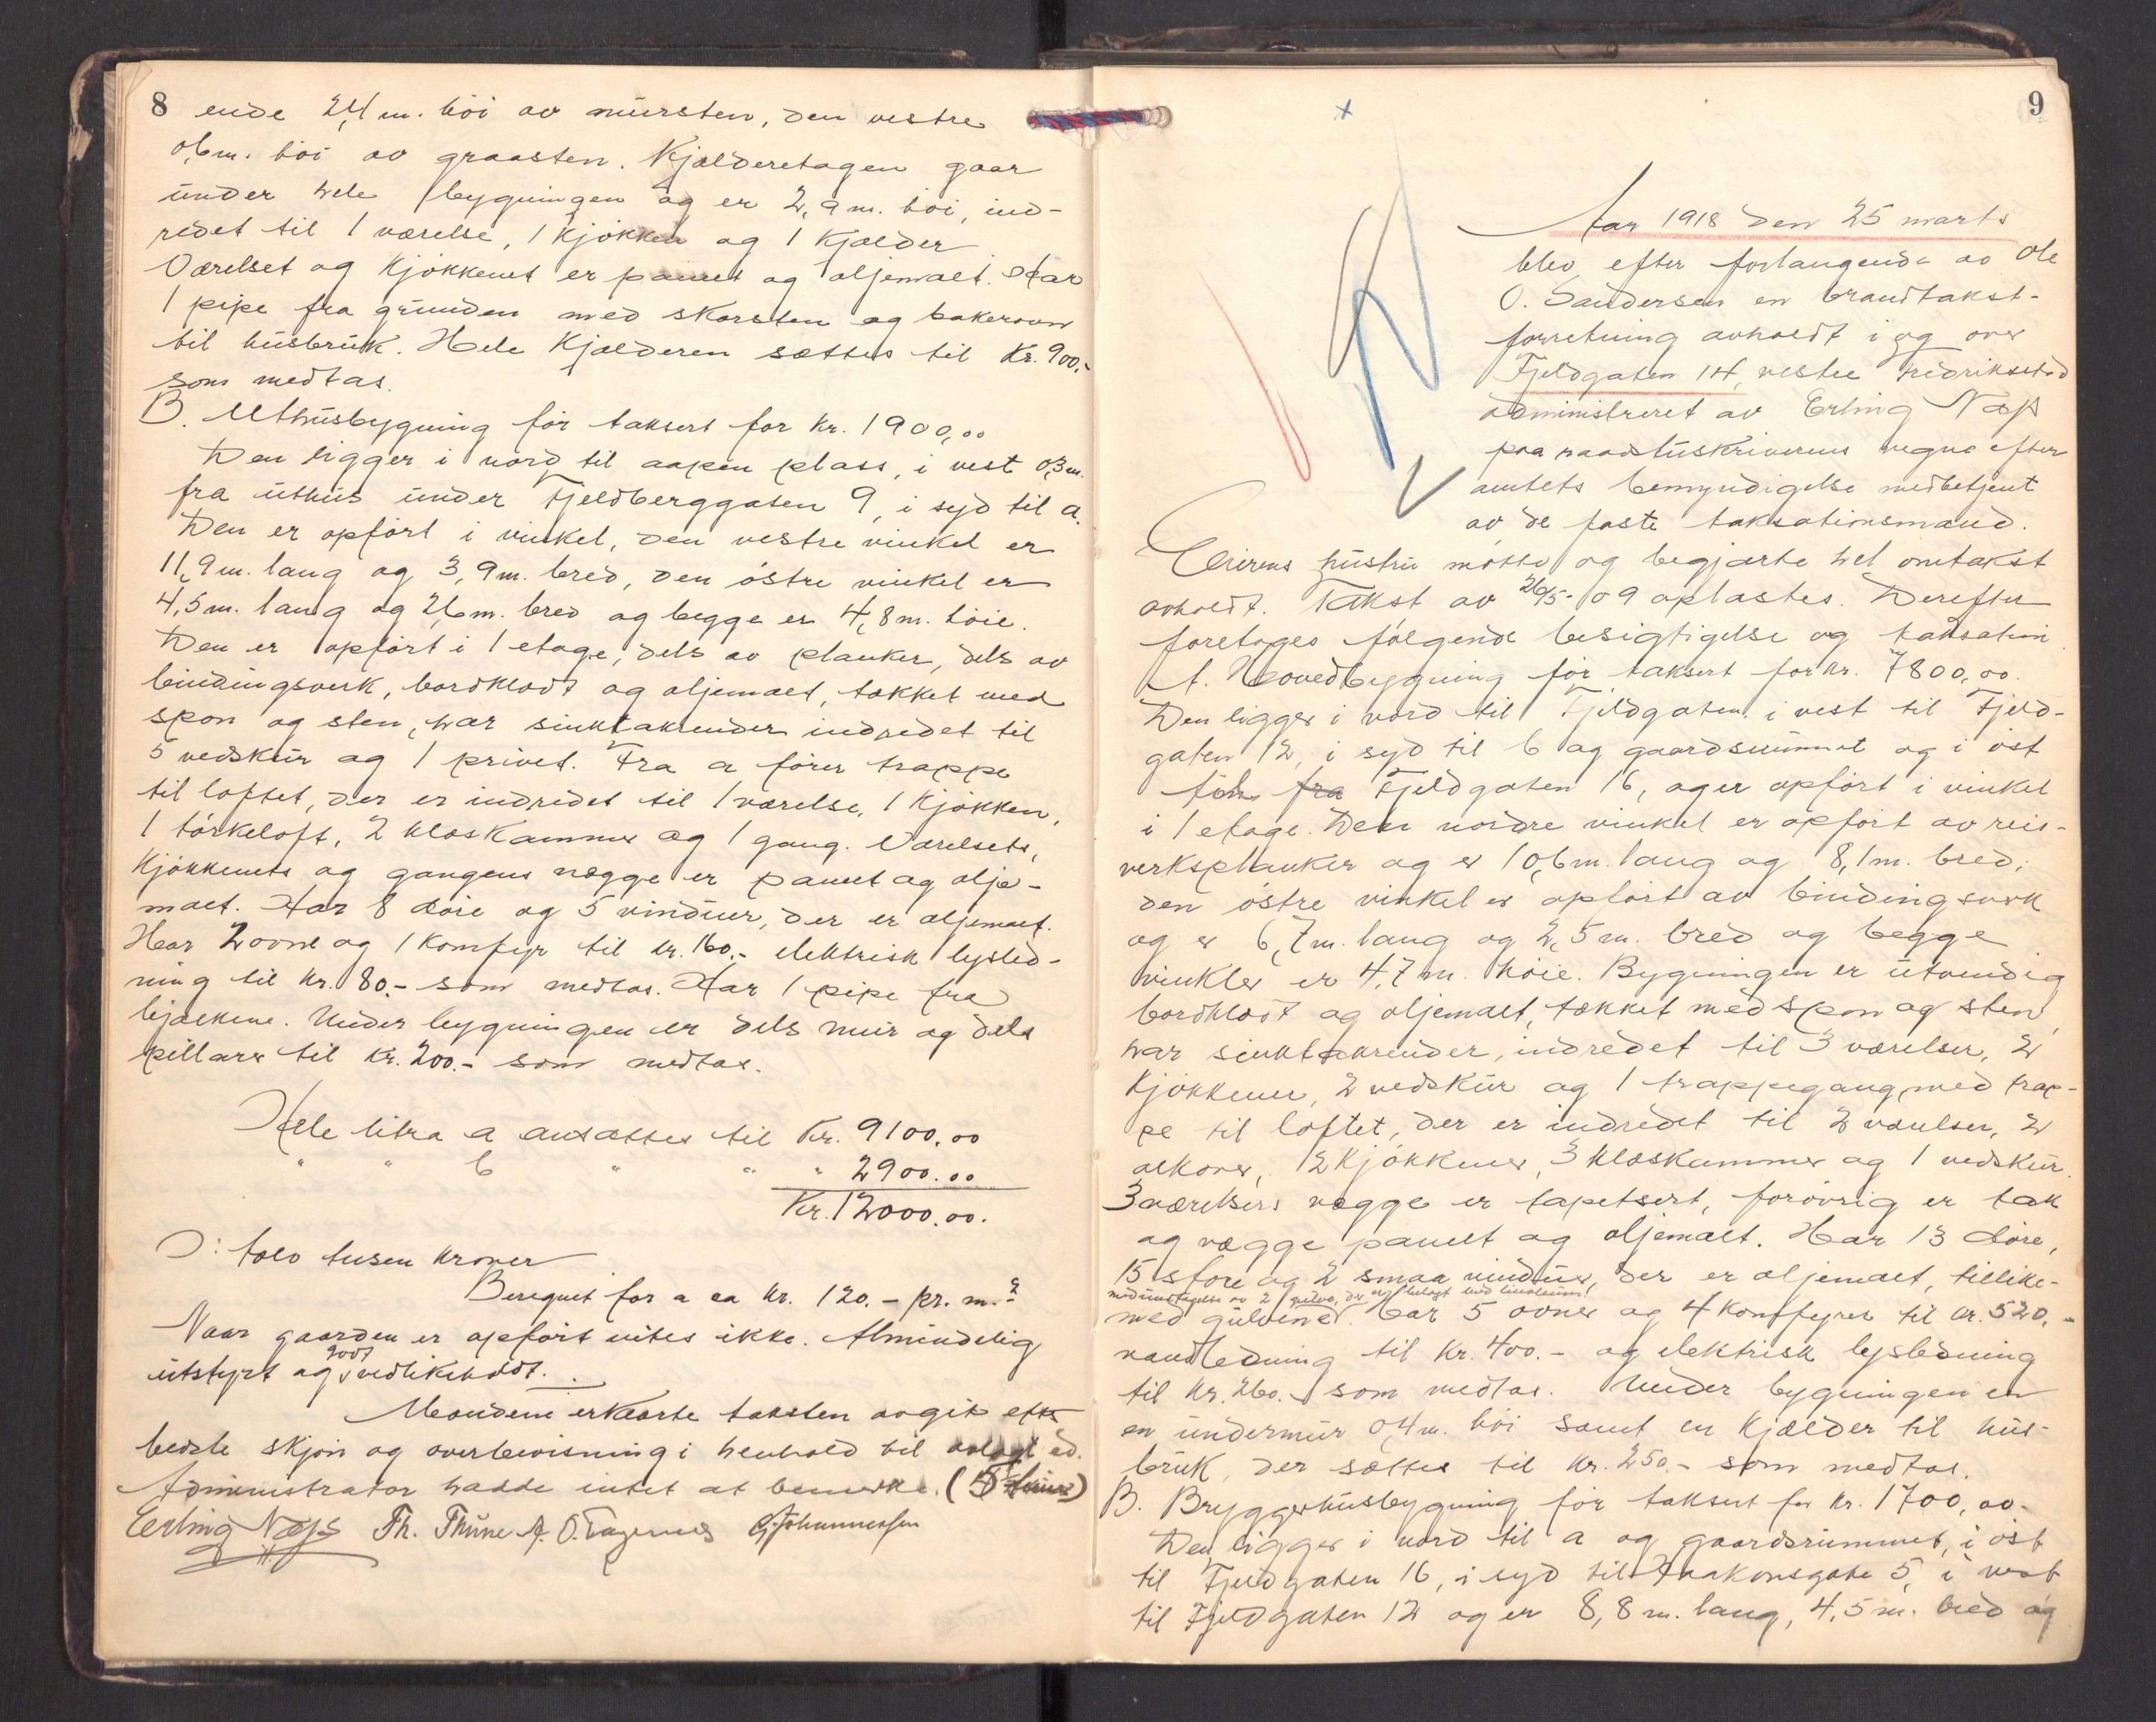 8 ende 2,4 m. höi av mursten, den vestre
0,6 m. höi av graasten. Kjælderetagen gaar
under hele bygningen og er 2,9 m. höi, ind-
redet til 1 værelse, 1 kjökken og 1 kjælder
Værelset og kjökkenet er panelt og oljemalt. Har
1 pipe fra grunden med skorsten og bakerovn
til husbruk. Hele kjælderen sættes til kr. 900.-
som medtas.
B. Uthusbygning för taksert for kr. 1900,00
Den ligger i nord til aapen plass, i vest 0,3 m.
fra uthus under Fjeldberggaten 9, i syd til a.
Den er opfört i vinkel, den vestre vinkel er
11,9 m. lang og 3,9 m. bred, den östre vinkel er
4,5 m. lang og 2,6 m. bred og begge er 4,8 m. höie.
Den er opfört i 1 etage, dels av planker, dels av
bindingsverk, bordklædt og oljemalt, tækket med
spon og sten, har sinktakrender indredet til
5 vedskur og 1 privet. Fra a förer trappe
til loftet, der er indredet til 1 værelse, 1 kjökken,
1 törkeloft, 2 klæskammer og 1 gang. Værelsets,
kjökkenets og gangens vægge er panelt og olje-
malt. Har 8 döre og 5 vinduer, der er oljemalt.
Har 2 ovne og 1 komfyr til kr. 160.- elektrisk lysled-
ning til kr. 80.- som medtas. Har 1 pipe fra
bjælkene. Under bygningen er dels mur og dels
pillarer til kr. 200.- som medtas.
Hele litra a ansættes til kr. 9100,00
" " b " " " 2900.00
Kr. 12000.00.
Ɔ: tolv tusen kroner
Beregnet for a ca kr. 120.- pr. m.2
Naar gaarden er opfört vites ikke. Almindelig
godt
utstyrt og vedlikeholdt.
Mændene erklærte taksten avgit efter
bedste skjön og overbevisning i henhold til avlagt ed.
Administrator hadde intet at bemerke. (5
Erling Næss Th. Thune A. O. Johannessen
9
Aar 1918 den 25 marts
blev efter forlangende av Ole
O. Sandersen en brandtakst-
forretning avholdt i og over
Fjeldgaten 14, vestre Fredrikstad
administreret av Erling Næss
paa raadstuskriverens vegne efter
amtets bemyndigelse medbetjent
av de faste taksationsmænd.
Eierens hustru mötte og begjærte hel omtakst
avholdt. Takst av 26/5-09 oplæstes. Derefter
foretoges fölgende besigtigelse og taksation
A. Hovedbygning för taksert for kr. 7800,00.
Den ligger i nord til Fjeldgaten, i vest til Fjeld-
gaten 12, i syd til b og gaardsrummet og i öst
til fra Fjeldgaten 16, og er opfört i vinkel
i 1 etage. Den nordre vinkel er opfört av reis-
verksplanker og er 10,6 m. lang og 8,1 m. bred,
den östre vinkel er opfört av bindingsverk
og er 6,7 m. lang og 2,5 m. bred og begge
vinkler er 4,7 m. höie. Bygningen er utvendig
bordklædt og oljemalt, tækket med spon og sten,
har sinktakrender, indredet til 3 værelser, 2
kjökkener, 2 vedskur og 1 trappegang med trap-
pe til loftet, der er indredet til 2 værelser, 2
alkover, 2 kjökkener, 3 klæskammer og 1 vedskur.
3 værelsers vægge er tapetsert, forövrig er tak
og vægge panelt og oljemalt. Har 13 döre,
15 store og 2 smaa vinduer, der er oljemalt, tillike-
med undtagelse av 2 gulve, der er belagt med linoleum
med gulvene. Har 5 ovner og 4 komfyrer til kr. 520.-
vandledning til kr. 400.- og elektrisk lysledning
til kr. 260.- som medtas. Under bygningen er
en undermur 0,4 m. höi samt en kjælder til hus-
bruk, der sættes til kr. 250.- som medtas.
B. Bryggerhusbygning för taksert for kr. 1700,00.
Den ligger i nord til a og gaardsrummet, i öst
til Fjeldgaten 16, i syd til Haakonsgate 5, i vest
til Fjeldgaten 12 og er 8,8 m. lang, 4,5 m. bred og